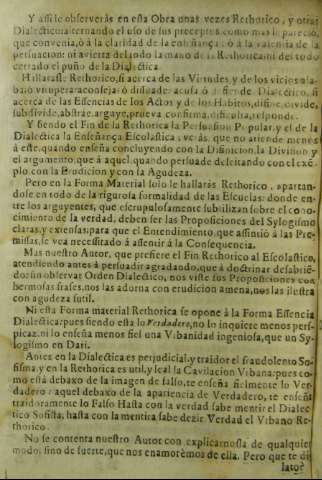 Y assi le observeràs en esta Obra unas vezes Rethorico, y otras
Dialectico alternando el uso de sus preceptos como mas le pareciò,
que convenia, ò à la claridad de la enseñança, ò à la valentia de la
persuasion: ni avierta del todo la mano de la Rethorica ni del todo
cerrado el puño de la Dialectica.
Hallarasle Rethorico, si acerca de las Virtudes, y de los vicios ala-
ba ò vitupera aconseja ò disuade: acusa ò defiende. Dialectico, si
acerca de las Essencias de los Actos y de los Habitos, difine, divide,
subdivide, abstrae, arguye, prueva confirma, dificulta, responde.
Y siendo el Fin de la Rethorica la Persuasion Popular, y el de la
Dialectica la Enseñança Escolastica: veràs, que no atiende menos
à este, quando enseña concluyendo con la Difinicion, la Division y
el argumento, que à aquel, quando persuade deleitando con el exē-
plo, con la Erudicion y con la Agudeza.
Pero en la Forma Material solo le hallaràs Rethorico, apartan-
dose en todo de la rigurosa formalidad de las Escuelas: donde en-
tre los arguyentes, que escrupulosamente subtilizan sobre el cono-
cimiento de la verdad, deben ser las Proposiciones del Sylogismo
claras, y extensas: para que el Entendimiento, que assintiò à las Pre-
missas, se vea necessitado à assentir à la Consequencia.
Mas nuestro Autor, que prefiere el Fin Rethorico al Escolastico,
atendiendo antes à persuadir agradando, que à doctrinar desabriē-
do: sin observar Orden Dialectico, nos viste sus Proposiciones con
hermosas frases, nos las adorna con erudicion amena, nos las ilustra
con agudeza sutil.
Ni esta Forma material Rethorica se opone à la Forma Essencia
Dialectica: pues siendo esta lo Verdadero, no lo inquiere menos pers-
picaz, ni lo enseña menos fiel una Urbanidad ingeniosa, que un Sy-
logismo en Dari.
Antes en la Dialectica es perjudicial, y traidor el fraudolento So-
fisma, y en la Rethorica es util, y leal la Cavilacion Urbana: pues co-
mo està debaxo de la imagen de falso, te enseña fielmente lo Ver-
dadero: aquel debaxo de la apartencia de Verdadero, te enseña
traidoramente lo Falso Hasta con la verdad sabe mentir el Dialec-
tico Sofista: hasta con la mentira sabe dezir Verdad el Urbano Re-
thorico.
No se contenta nuestro Autor con explicarnosla de qualquier
modo, sino de suerte, que nos enamorèmos de ella. Pero que te di-
lato?